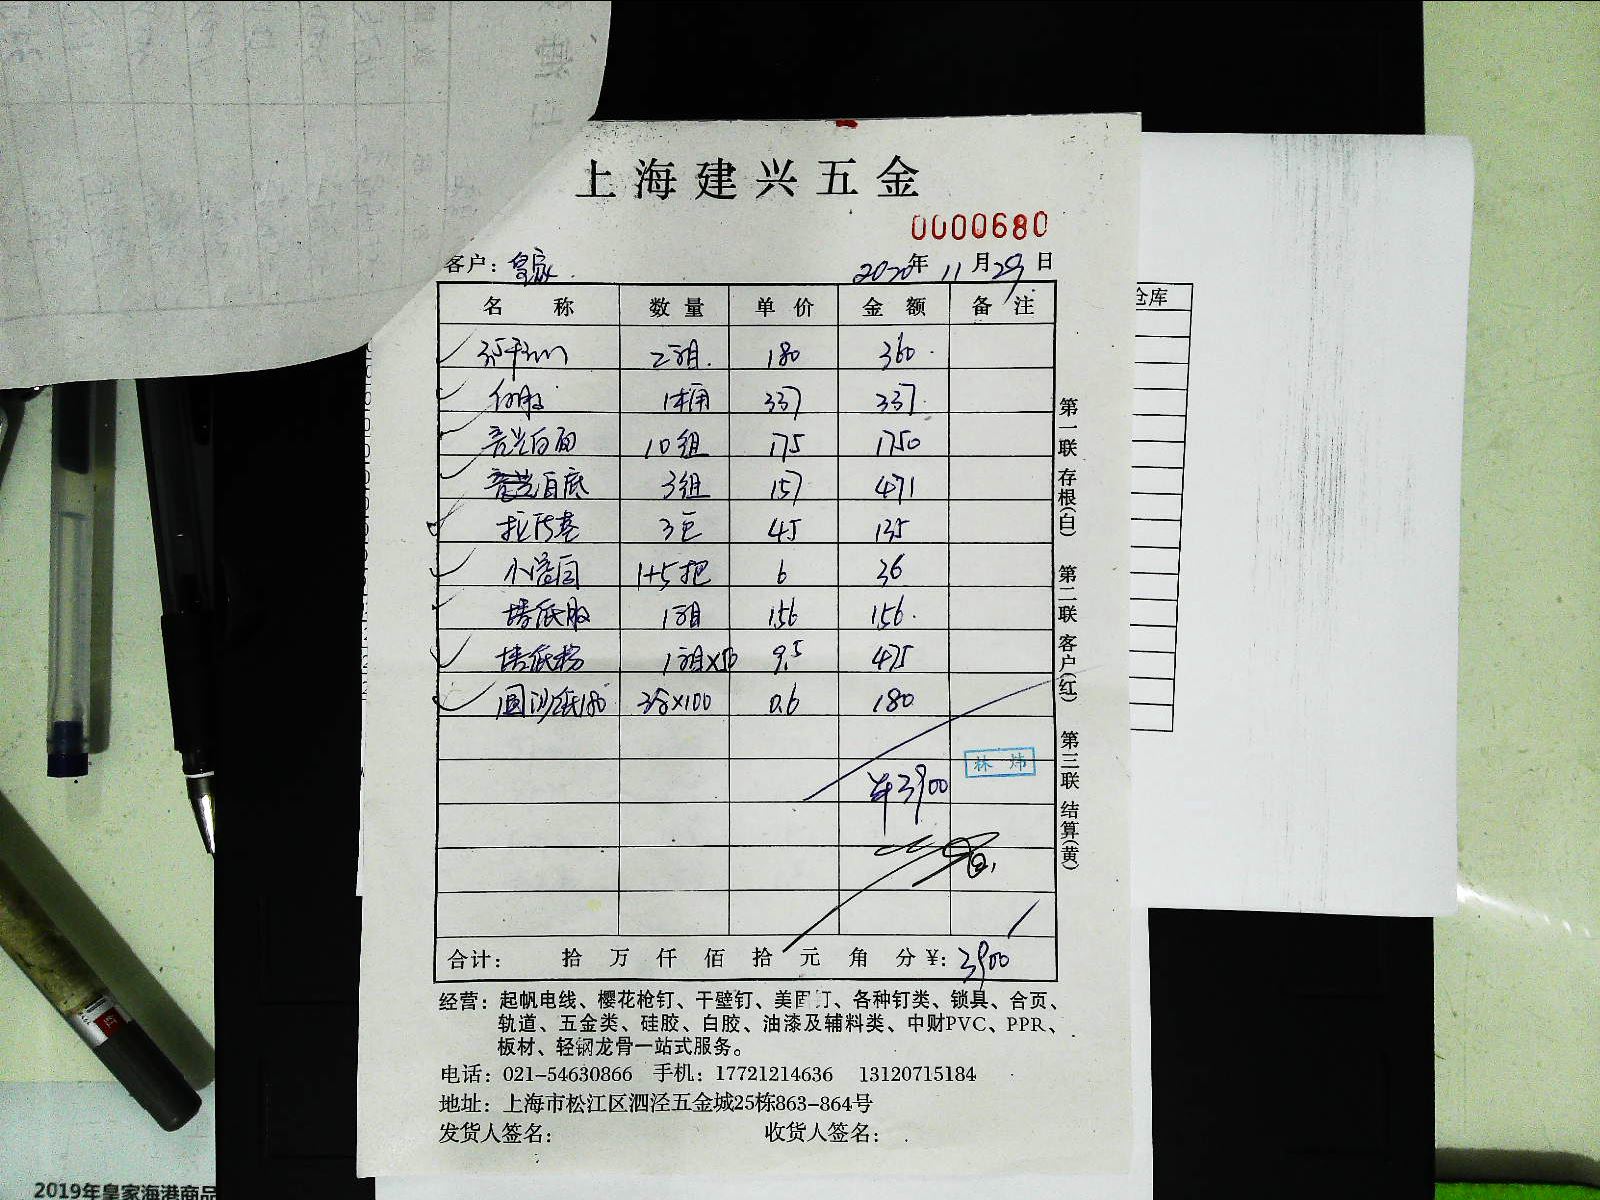 上海建兴五金
0000680
客户：皇家 2020年11月29日
名称 数量 单价 金额 备注
2组 180 360
白胶 1桶 337 337
白面 10组 175 1750
白底 3组 157 471
3包 45 135
小滚筒 1+5把 6 36
墙底胶 1组 156 156
墙底粉 1组×50 9.5 475
圆沙纸180 3合×100 0.6 180
林炜
¥3900
合计： 拾 万 仟 佰 拾 元 角 分 ¥：3900
经营：起帆电线、樱花枪钉、干壁钉、美固钉、各种钉类、锁具、合页、
轨道、五金类、硅胶、白胶、油漆及辅料类、中财PVC、PPR、
板材、轻钢龙骨一站式服务。
电话：021-54630866 手机：17721214636 13120715184
地址：上海市松江区泗泾五金城25栋863-864号
发货人签名： 收货人签名：
第一联 存根(白) 第二联 客户(红) 第三联 结算(黄)
仓库
2019年皇家海港商品